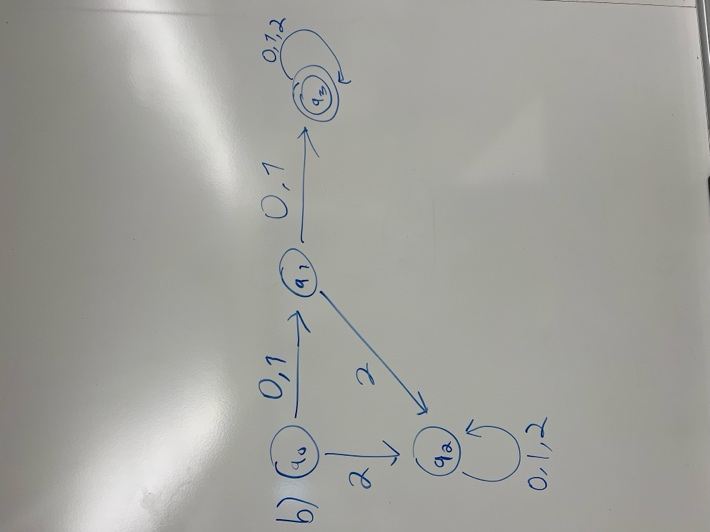 b) q0 0,1 q1 0,1 q3 0,1,2
2 2
q2 0,1,2